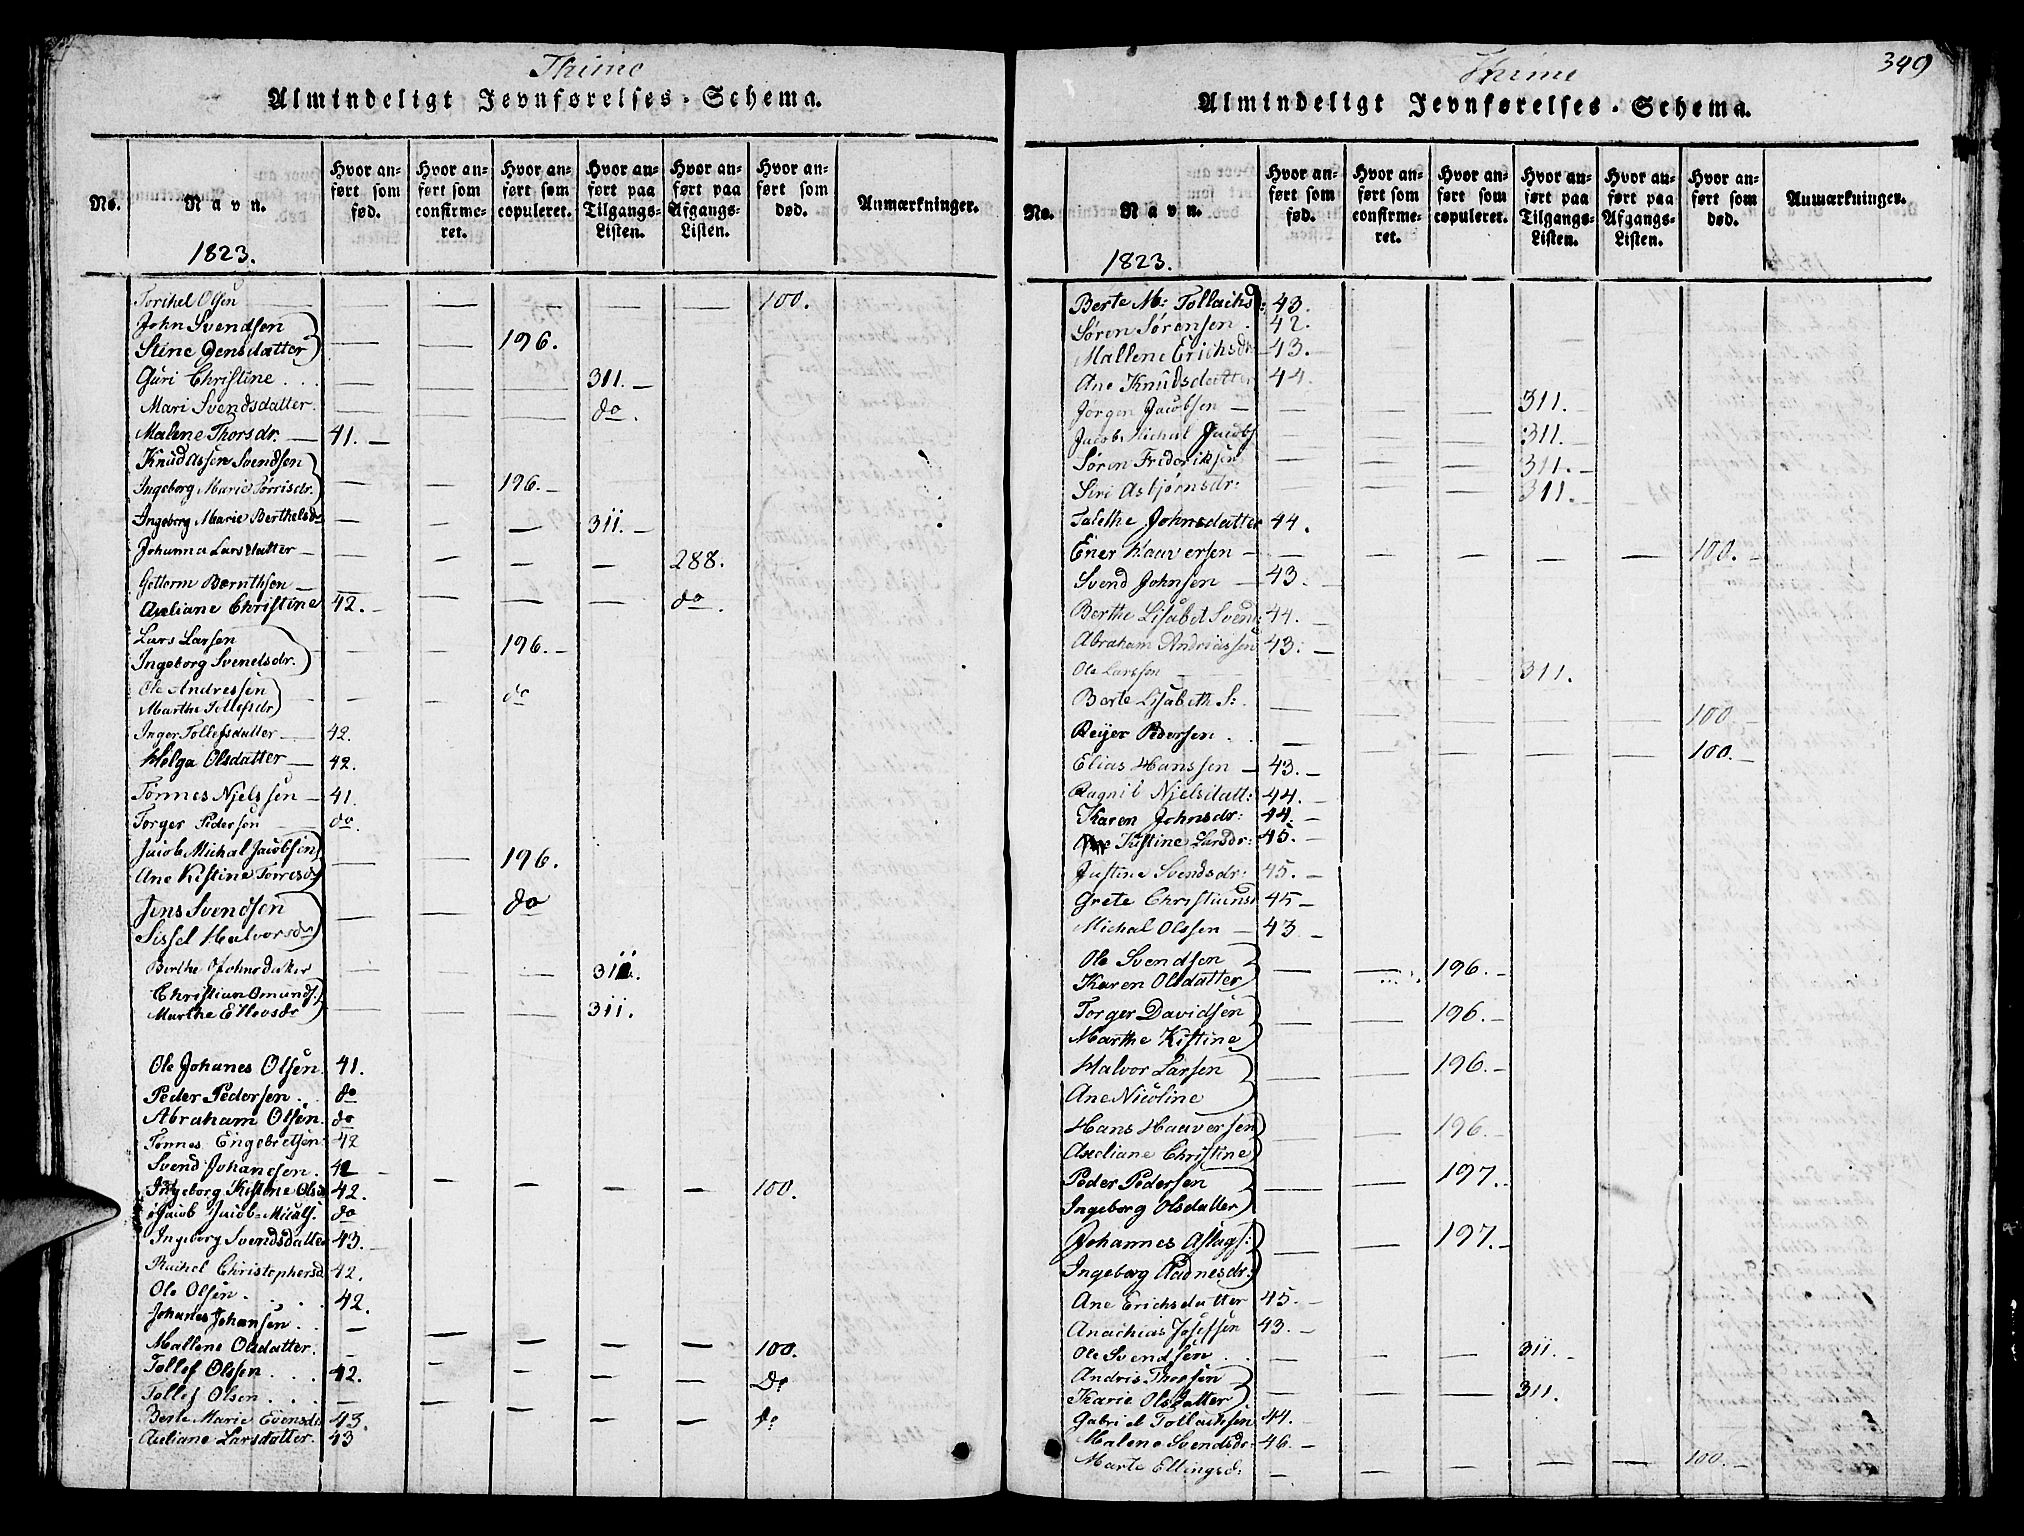 Thime
Almindeligt Jevnførelses-Schema.
No.
Navn.
Hvor anført som fød.
Hvor anført som confirmeret.
Hvor anført som copuleret.
Hvor anført paa Tilgangs-Listen.
Hvor anført paa Afgangs-Listen.
Hvor anført som død.
Anmærkninger.
1823.
Torchel Olsen — — — — — 100.
John Svendsen
Stine Jensdatter — — 196.
Guri Christine . . . — — — 311. —
Mari Svendsdatter. — — — do
Malene Thorsdr. — 41. —
Knud Assen Svendsen
Ingeborg Marie Torrisdr. — — 196. —
Ingeborg Marie Berthelsdr — — — 311. —
Johanna Larsdatter — — — — — 288.
Gottorm Bernthsen —
Axeliane Christine 42. — — — — do.
Lars Larsen
Ingeborg Svendsdr. — — 196. —
Ole Andressen
Marthe Tollefsdr — — do
Inger Tollefsdatter — 42.
Helga Olsdatter — 42.
Tønnes Njelssen — 41.
Torger Pedersen — do.
Jacob Michal Jacobsen
Ane Kistine Torresdr — — 196.
Jens Svendsen
Sissel Halvorsdr — — do
Berthe Johnsdatter — — 311.
Christian Omunds:
Marthe Ellevsdr — — — 311.
Ole Johanes Olsen. 41.
Peder Pedersen . . do
Abraham Olsen. do
Tønnes Engebretsen 42
Svend Johansen. 42 —
Ingeborg Kistine Olsd 42. — — — — 100.
Jacob Jacob-Micals. do
Ingeborg Svendsdatter 43. —
Rachel Christophersd 42.
Ole Olsen. . . . . 42.
Johanes Johansen . . —
Mallene Olsdatter. — — — — — 100.
Tollef Olssen . . . 42. — — — — do
Tollef Olsen . . . . —
Berte Marie Evensdr 43. — — — — do
Axeliane Larsdatter. 43
349
Thime
Almindeligt Jevnførelses-Schema.
No.
Navn.
Hvor anført som fød.
Hvor anført som confirmeret.
Hvor anført som copuleret.
Hvor anført paa Tilgangs-Listen.
Hvor anført paa Afgangs-Listen.
Hvor anført som død.
Anmærkninger.
1823.
Berte M: Tollachsd: 43.
Søren Sørensen . 42.
Mallene Erichsdr 43. —
Ane Knudsdatter 44.
Jørgen Jacobsen — — — — 311. —
Jacob Michal Jacobs — — — 311. —
Søren Frederiksen — — — 311. —
Siri Asbjørnsdr: — — — 311. —
Talethe Johnsdatter 44.
Ener Haaversen — — — — — — 100. —
Svend Johnsen — 43. —
Berthe Lisabet Svend: 44. —
Abraham Andriassen 43: —
Ole Larssen — — — — 311.
Berte Lisabeth S: — — — — — 100 —
Reijer Pedersen . . — — — — — 100. —
Elias Hanssen — 43. —
Ragnil Nielsdatt: 44. —
Karen Johnsdr: 44. —
Kistine Larsdr: 45. —
Justine Svendsdr: 45. —
Grete Christiansd 45 —
Michal Olssen — 43. —
Ole Svendsen
Karen Olsdatter — — 196. —
Torger Davidsen
Marthe Kistine — — 196. —
Halvor Larsen
Ane Nicoline — — 196. —
Hans Haaversen
Axeliane Christine — — 196. —
Peder Pedersen
Ingeborg Olsdatter — — 197. —
Johannes Aslags:
Ingeborg Aadnesdr: — — 197. —
Ane Erichsdatter 45. —
Anachias Josefsen 43. —
Ole Svendsen . . — — — 311. —
Andris Thorsen
Karie Olsdatter — — — 311. —
Gabriel Tollachsen 44. —
Malene Svendsdr: 46. —
Marte Ellingsd: — — — — — 100. —